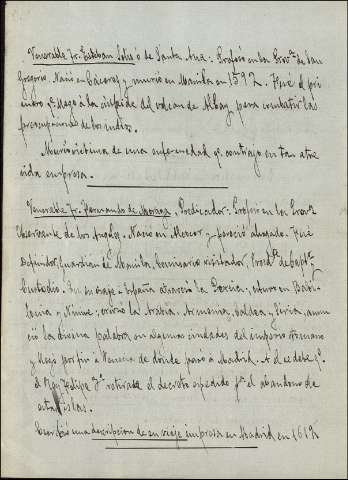 Venerable Fr. Esteban Solis ó de Santa Ana = Profesó en la Prov.ª de San
Gregorio. Nació en Cáceres y murió en Manila en 1592. Fué el pri-
mero q. llegó á la cúspide del volcan de Albay, para combatir las
preocupaciones de los indios.
Murió víctima de una enfermedad q. contrajo en tan atre-
vida empresa.
Venerable Fr. Fernando de Moraga, Predicador = Profesó en la Prov.ª
Observante de los Angeles. Nació en y pereció ahogado. Fué
Definidor, Guardian de Manila, Comisario visitador, Presid.te de Cap.º y
Custodio. En su viaje á España atravesó la Persia; estuvo en Babi-
lonia y Ninive; cruzó la Arabia, Armenia, Caldea y Siria, anun-
ció la divina palabra en algunas ciudades del imperio Otomano
y llegó por fin á Venecia de donde pasó á Madrid. A él se debe q.
el Rey Felipe 3º retirase el decreto espedido p.ª el abandono de
estas islas.
Escribió una descripcion de su viaje impresa en Madrid en 1619.